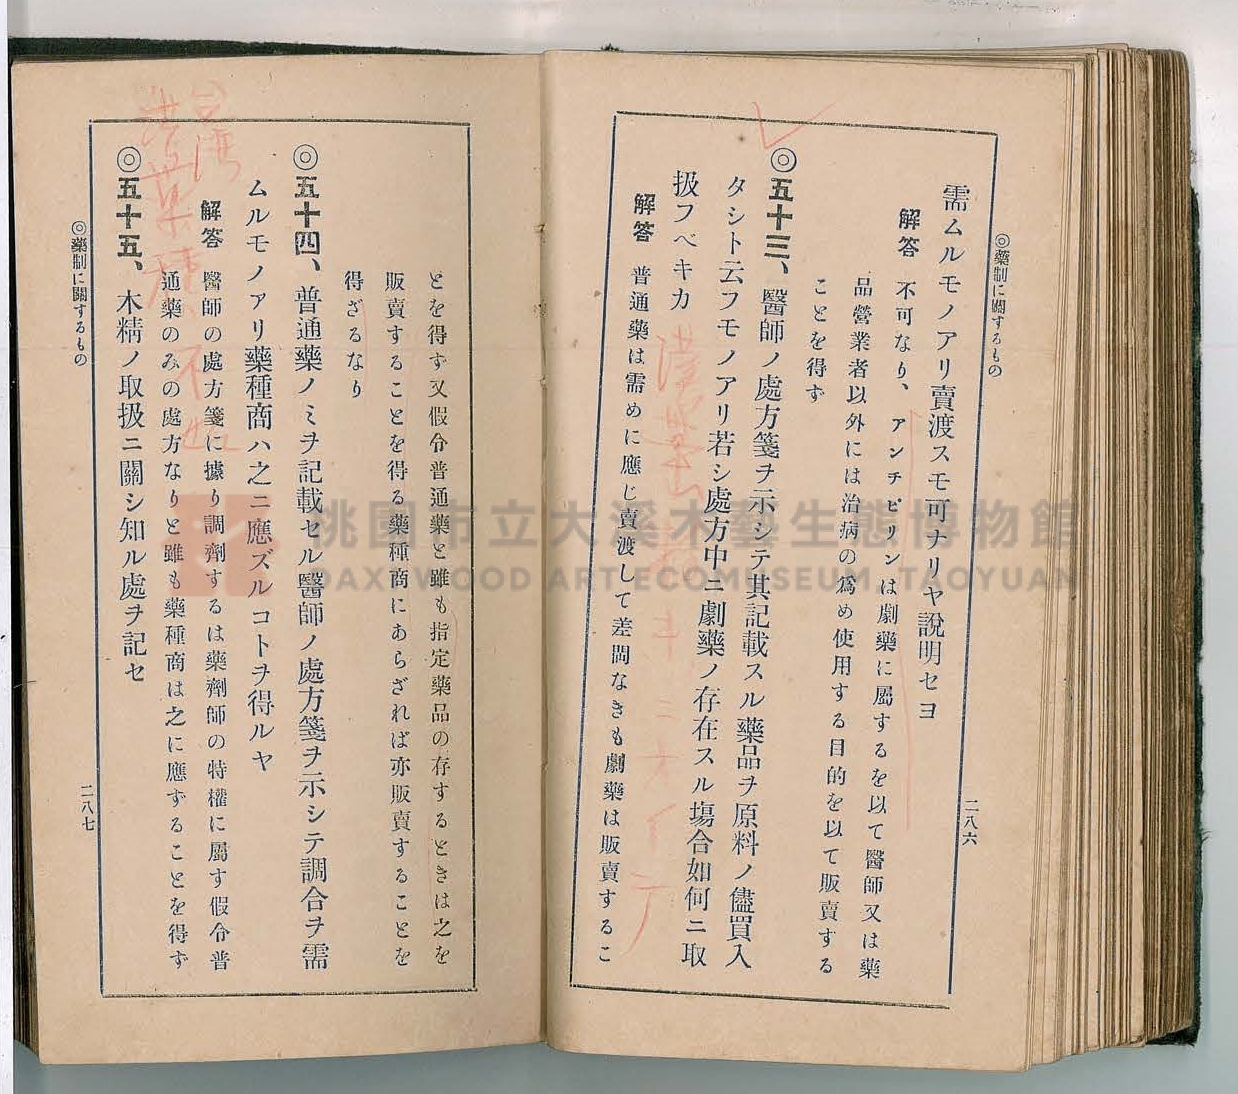 ◎藥制に關するもの
二八六
需ムルモノアリ賣渡スモ可ナリヤ說明セヨ
解答 不可なり、アンチピリンは劇藥に屬するを以て醫師又は藥
品營業者以外には治病の爲め使用する目的を以て販賣する
ことを得ず
◎五十三、醫師ノ處方箋ヲ示シテ其記載スル藥品ヲ原料ノ儘買入
タシト云フモノアリ若シ處方中ニ劇藥ノ存在スル塲合如何ニ取
扱フベキカ
解答 普通藥は需めに應じ賣渡して差閊なきも劇藥は販賣するこ
とを得ず又假令普通藥と雖も指定藥品の存するときは之を
販賣することを得る藥種商にあらざれば亦販賣することを
得ざるなり
◎五十四、普通藥ノミヲ記載セル醫師ノ處方箋ヲ示シテ調合ヲ需
ムルモノアリ藥種商ハ之ニ應ズルコトヲ得ルヤ
解答 醫師の處方箋に據り調劑するは藥劑師の特權に屬す假令普
通藥のみの處方なりと雖も藥種商は之に應ずることを得ず
◎五十五、木精ノ取扱ニ關シ知ル處ヲ記セ
◎藥制に關するもの
二八七
桃園市立大溪木藝生態博物館
DAXI WOOD ART ECOMUSEUM, TAOYUAN